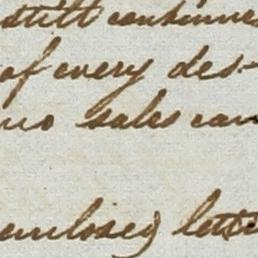 still continues
of every des-
no sales can
enclosed lette